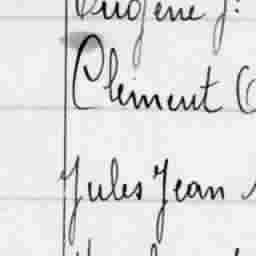 Eugène J.
Clément C
Jules Jean